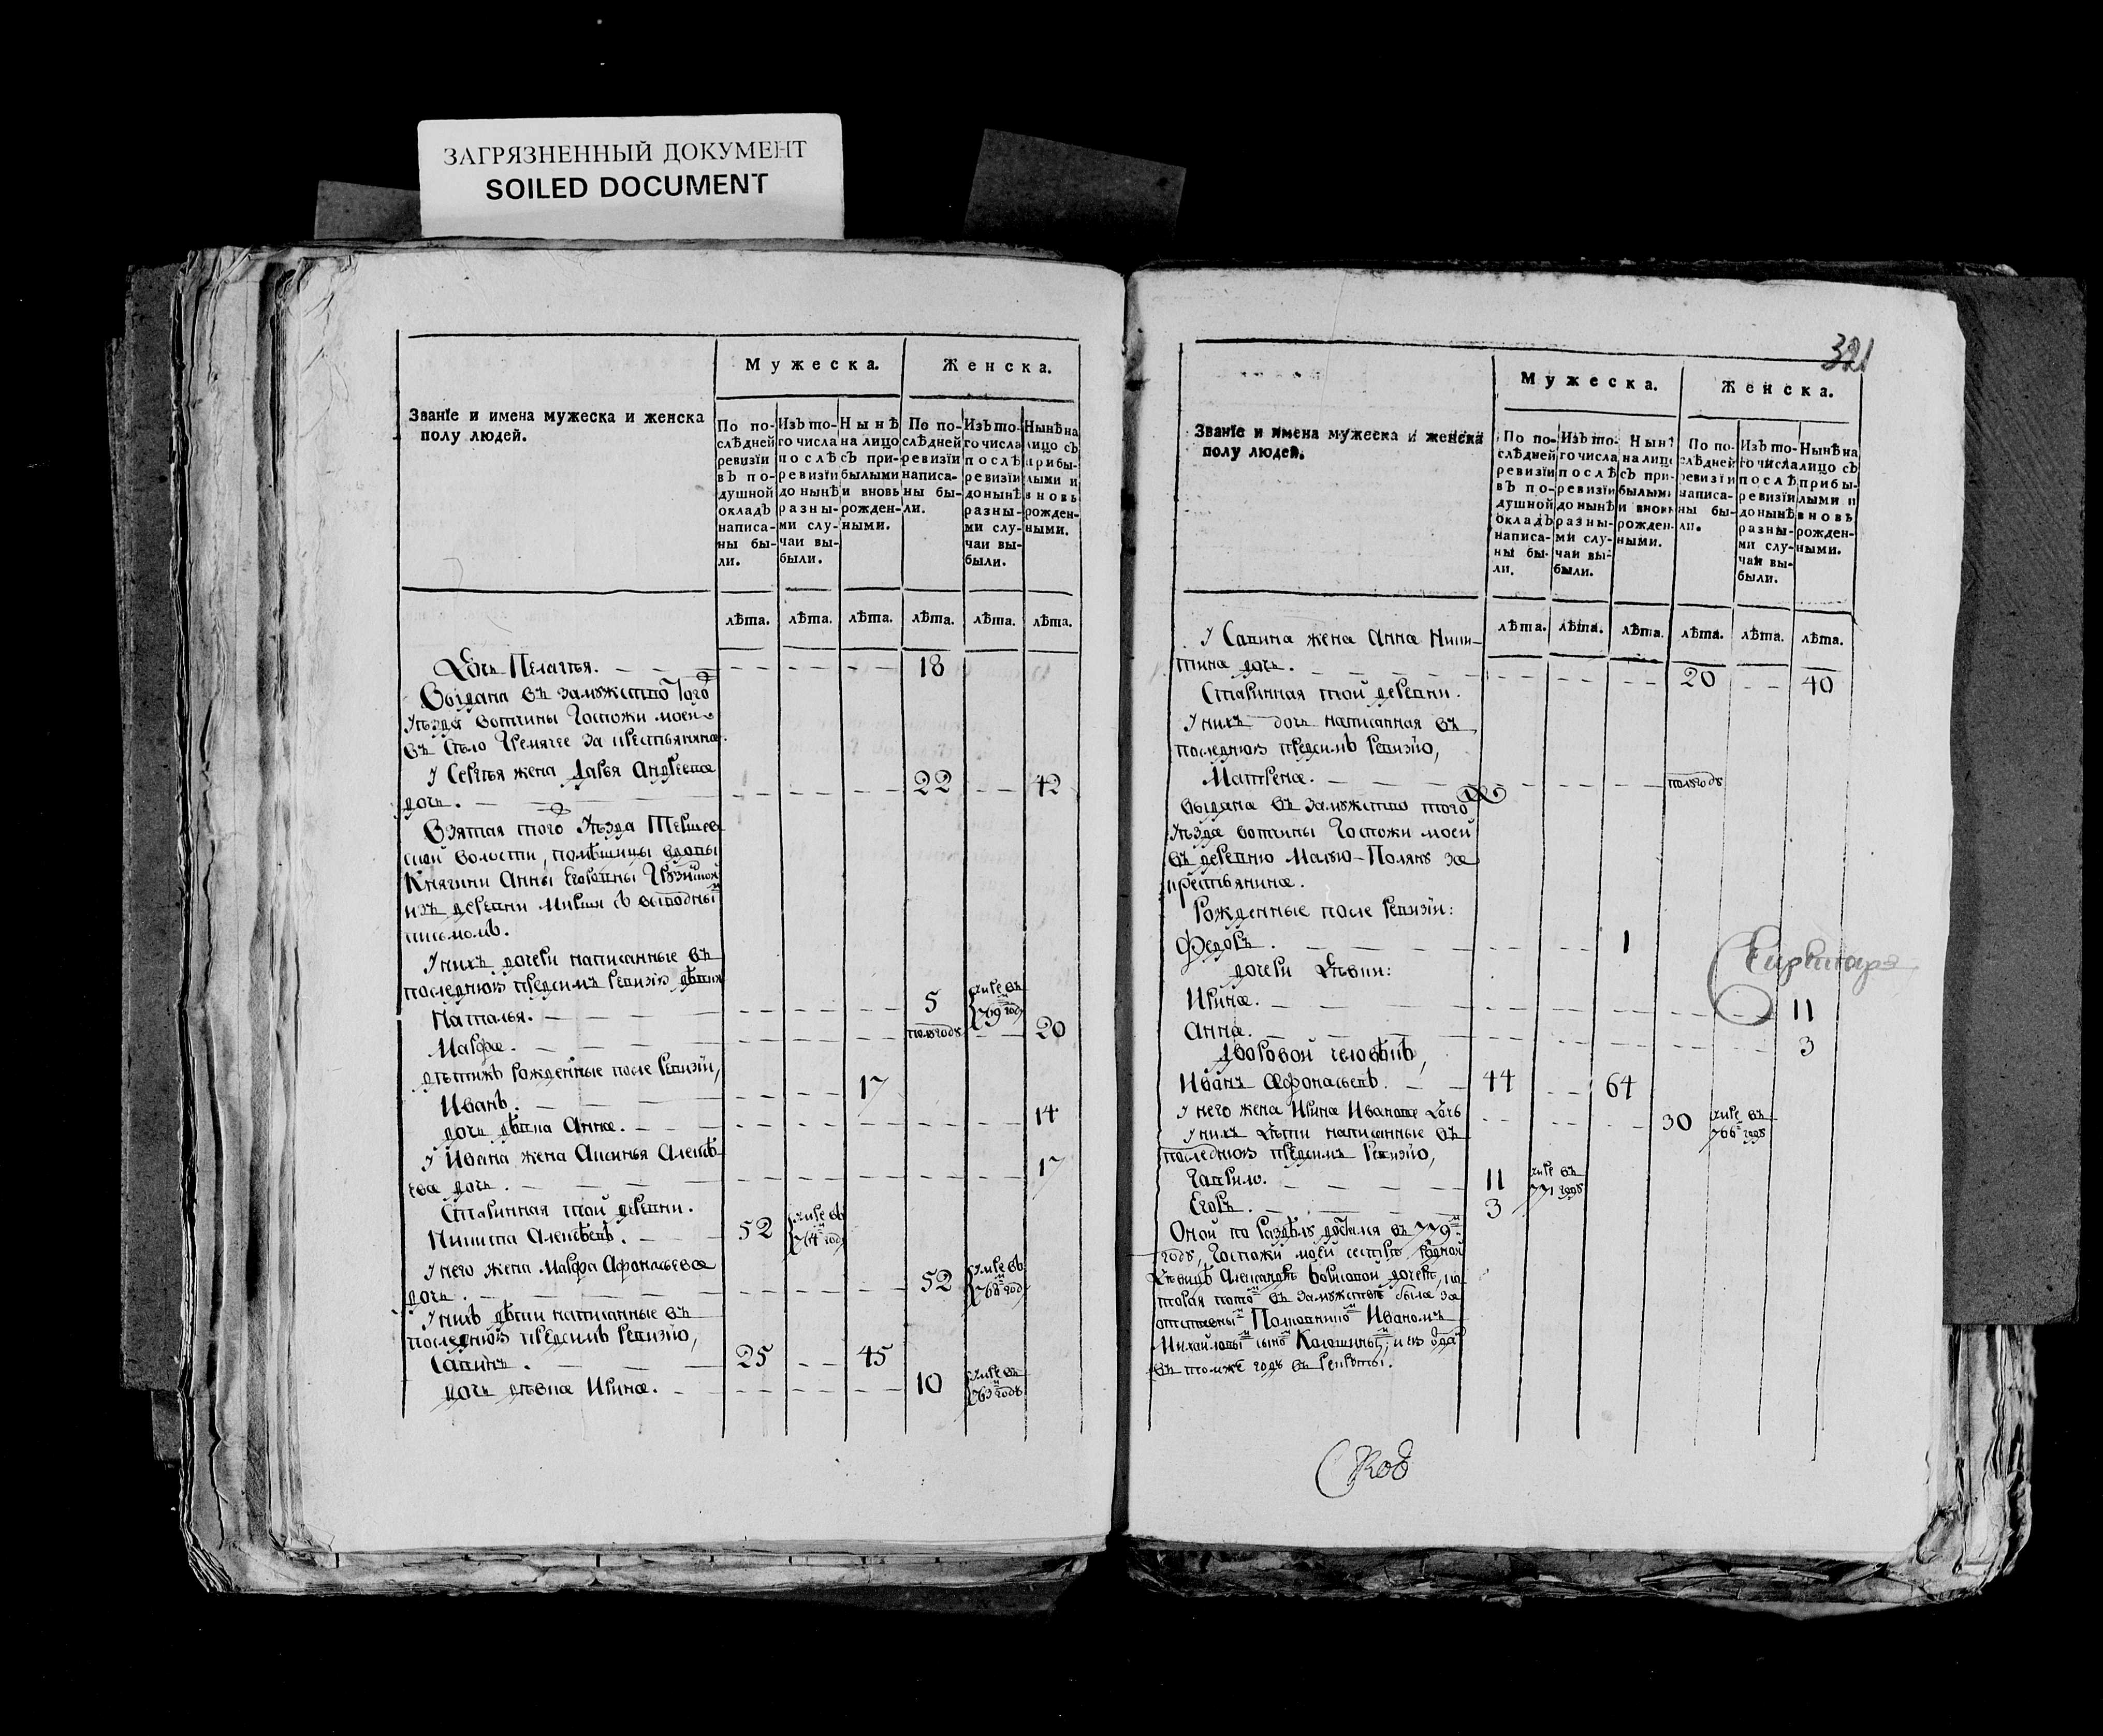 ЗАГРЯЗНЕННЫЙ ДОКУМЕНТ
SOILED DOCUMENT
Званїе и имена мужеска и женска
полу людей.
Мужеска.
Женска.
По послѣдней ревизїи въ подушной окладъ написаны были.
Изъ того числа послѣ ревизїи до нынѣ разными случаи выбыли.
Нынѣ на лицо съ прибылыми и вновь рожденными.
По послѣдней ревизїи написаны были.
Изъ того числа послѣ ревизїи до нынѣ разными случаи выбыли.
Нынѣ на лицо съ прибылыми и вновь рожденными.
лѣта. лѣта. лѣта. лѣта. лѣта. лѣта.
Дочь Пелагья. 18
Выдана въ замужство того
уѣзда вотчины Госпожи моей
въ село Гремячее за крестьянина.
у Сергѣя жена Дарья Андреева
дочь. 22 42
Взятая того уѣзда
волости, помѣщицы вдовы
Княгини Анны Егоровны
изъ деревни съ выводнымъ
писмомъ.
у нихъ дочери написанные въ
последнюю предсимъ ревизїю
Наталья. 5 умре въ 769м году
Марфа. полгоду 20
дѣтижъ рожденные после ревизїи,
Иванъ. 17
дочь девка Анна. 14
у Ивана жена Аксинья Алексѣ-
ева дочь. 17
Старинная той деревни.
Никита Алексѣевъ. 52 умре въ 764м году
у него жена Марфа Афонасьева
дочь. 52 умре въ 768м году
у нихъ дѣти написанные въ
последнюю предсимъ ревизїю,
Савинъ. 25 45
дочь девка Ирина. 10 умре въ 763м году
321
Званїе и имена мужеска и женска
полу людей.
Мужеска.
Женска.
По послѣдней ревизїи въ подушной окладъ написаны были.
Изъ того числа послѣ ревизїи до нынѣ разными случаи выбыли.
Нынѣ на лицо съ прибылыми и вновь рожденными.
По послѣдней ревизїи написаны были.
Изъ того числа послѣ ревизїи до нынѣ разными случаи выбыли.
Нынѣ на лицо съ прибылыми и вновь рожденными.
лѣта. лѣта. лѣта. лѣта. лѣта. лѣта.
у Савина жена Анна Ники-
тина дочь. 20 40
Старинная той деревни.
у нихъ дочь написанная въ
последнюю предсимъ ревизїю,
Матрена. полгоду
выдана въ замужство того
уѣзда вотчины Госпожи моей
въ деревню Малую-Поляну за
крестьянина.
Рожденные после ревизїи:
Федоръ. 1
дочери девки:
Ирина. 11
Анна. 3
Дворовой человѣкъ,
Иванъ Афонасьевъ. 44 64
у него жена Ирина Иванова дочь 30 умре въ 766м году
у нихъ дѣти написанные въ
последнюю предсимъ ревизїю,
Гаврило. 11 умре въ 771 году
Егоръ. 3
Оной по разделу достался въ 779м
году, Госпожи моей сестре родной
девице Александре Борисовой дочере, ко-
торая потомъ въ замужстве была за
отставнымъ Полковникомъ Иваномъ
Михайловымъ сыномъ
въ томже году въ рекруты.